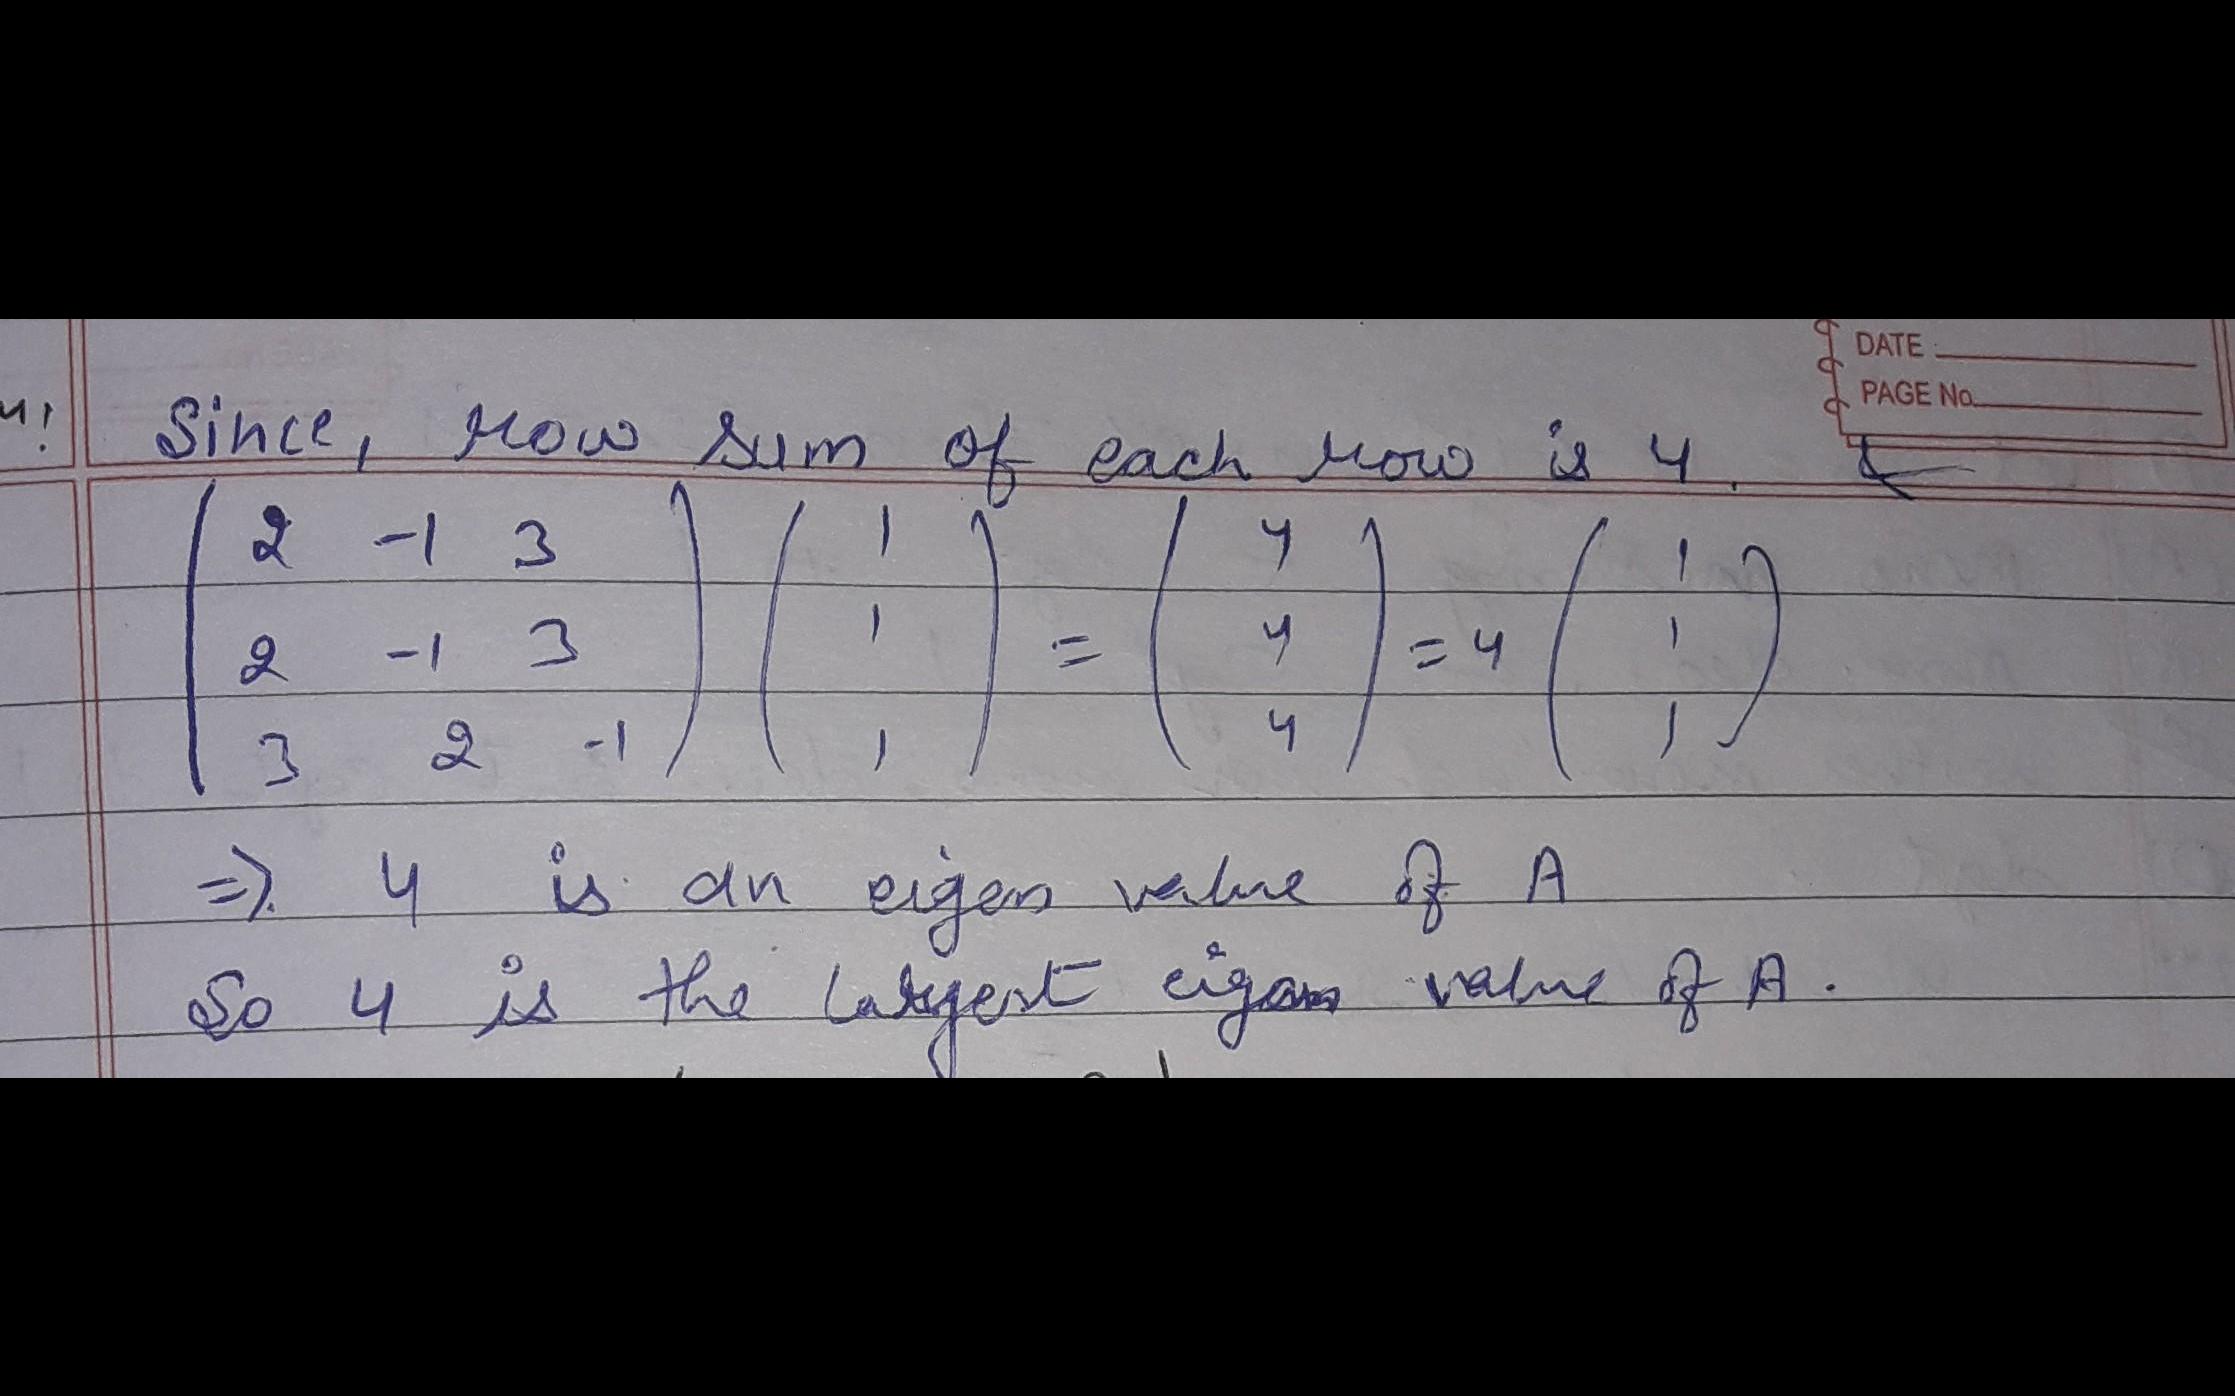 DATE
PAGE No.
4!
Since, row sum of each row is 4.
( 2 -1 3 ) ( 1 ) = ( 4 ) = 4 ( 1 )
( 2 -1 3 ) ( 1 ) ( 4 ) ( 1 )
( 3 2 -1 ) ( 1 ) ( 4 ) ( 1 )
=>. 4 is an eigen value of A
So 4 is the largest eigen value of A.